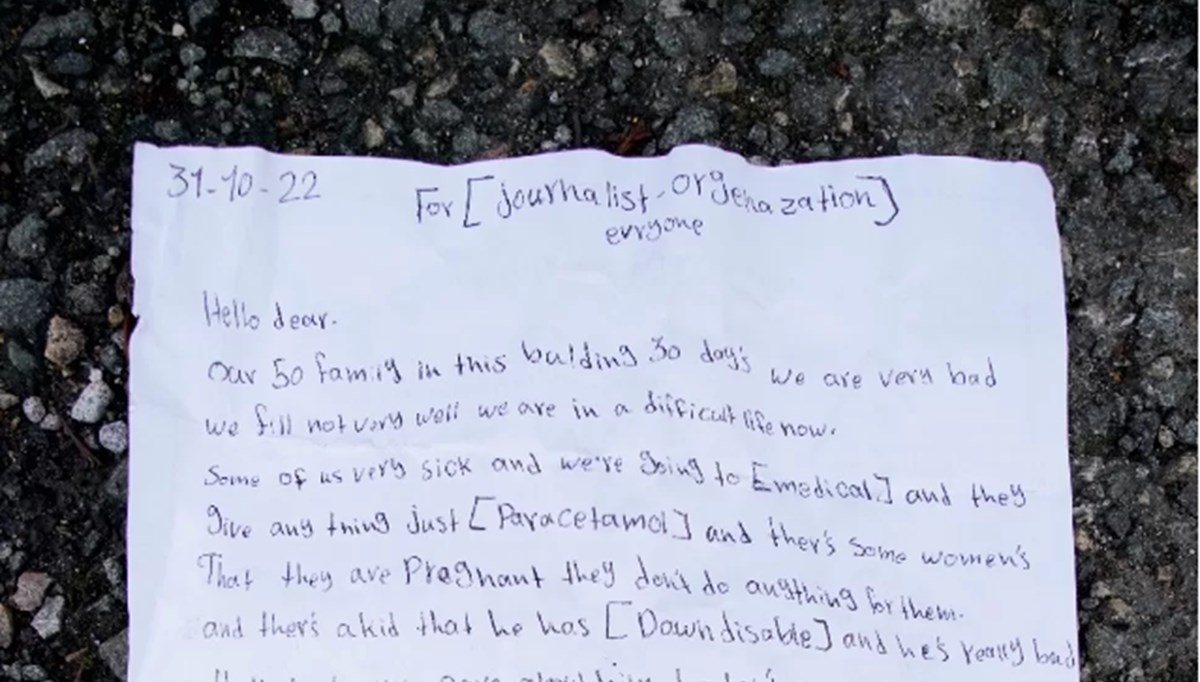 31-10-22
For [journalist-orgenazation]
evryone
Hello dear.
Our 50 famiy in this bulding 30 day's we are very bad
we fill not very well we are in a difficult life now.
Some of us very sick and we're going to [emedical] and they
give any thing just [Paracetamol] and ther's some women's
That they are Pregnant they don't do anything for them.
and ther's a kid that he has [Down disable] and he's really bad